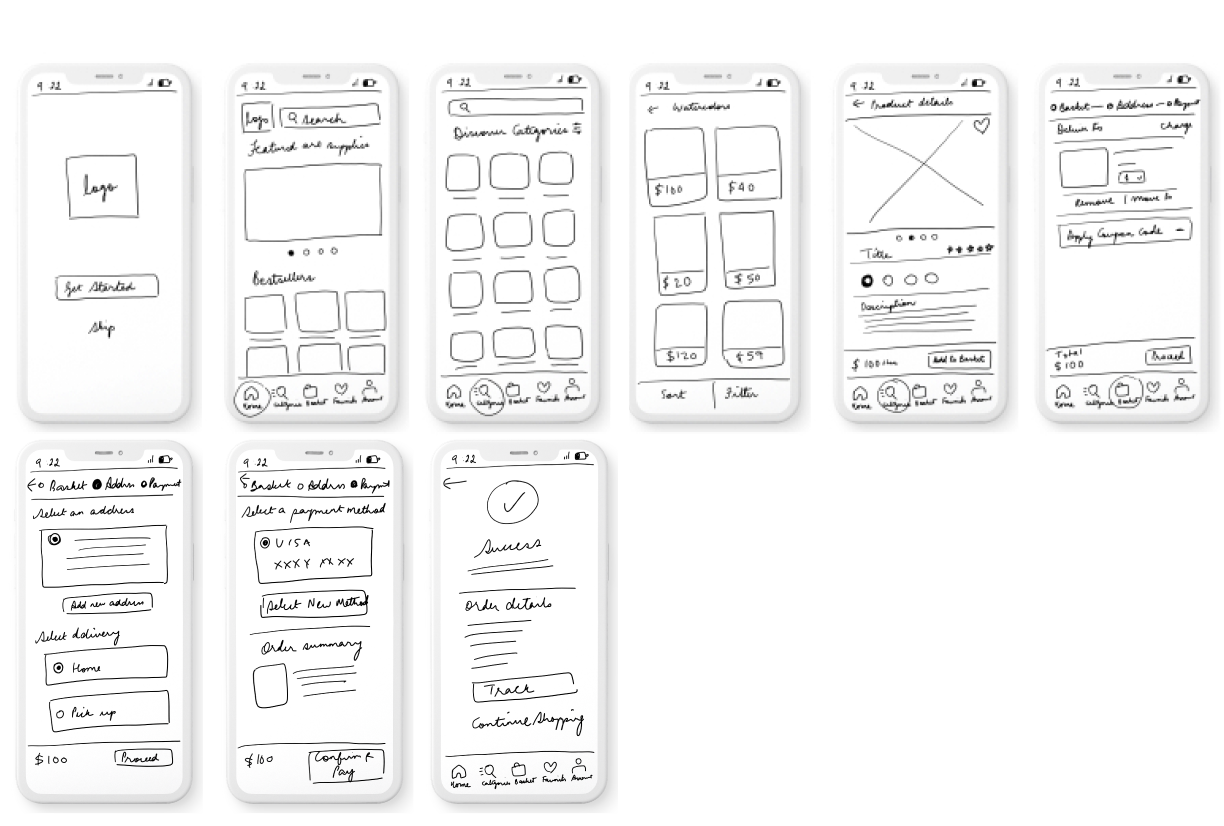 9 22
Logo
Get Started
Skip
9 22
Logo
Search
Featured are supplies
Bestsellers
Home Categories Basket Favourites Account
9 22
Discover Categories
Home Categories Basket Favourites Account
9 22
← Watercolors
$100 $40
$20 $50
$120 $59
Sort | Filter
9 22
← Product details
Title
Description
$ 100 Add to Basket
Home Categories Basket Favourites Account
9 22
Basket — Address — Payment
Deliver to Change
$
Remove | Move to
Apply Coupon Code
Total
$100 Proceed
Home Categories Basket Favourites Account
9 22
← Basket Address Payment
Select an address
Add new address
Select delivery
Home
Pick up
$100 Proceed
9 22
Basket Address Payment
Select a payment method
VISA
XXXX XXXX
Select New Method
Order summary
$100 Confirm & Pay
9 22
←
Success
Order details
Track
Continue Shopping
Home Categories Basket Favourites Account